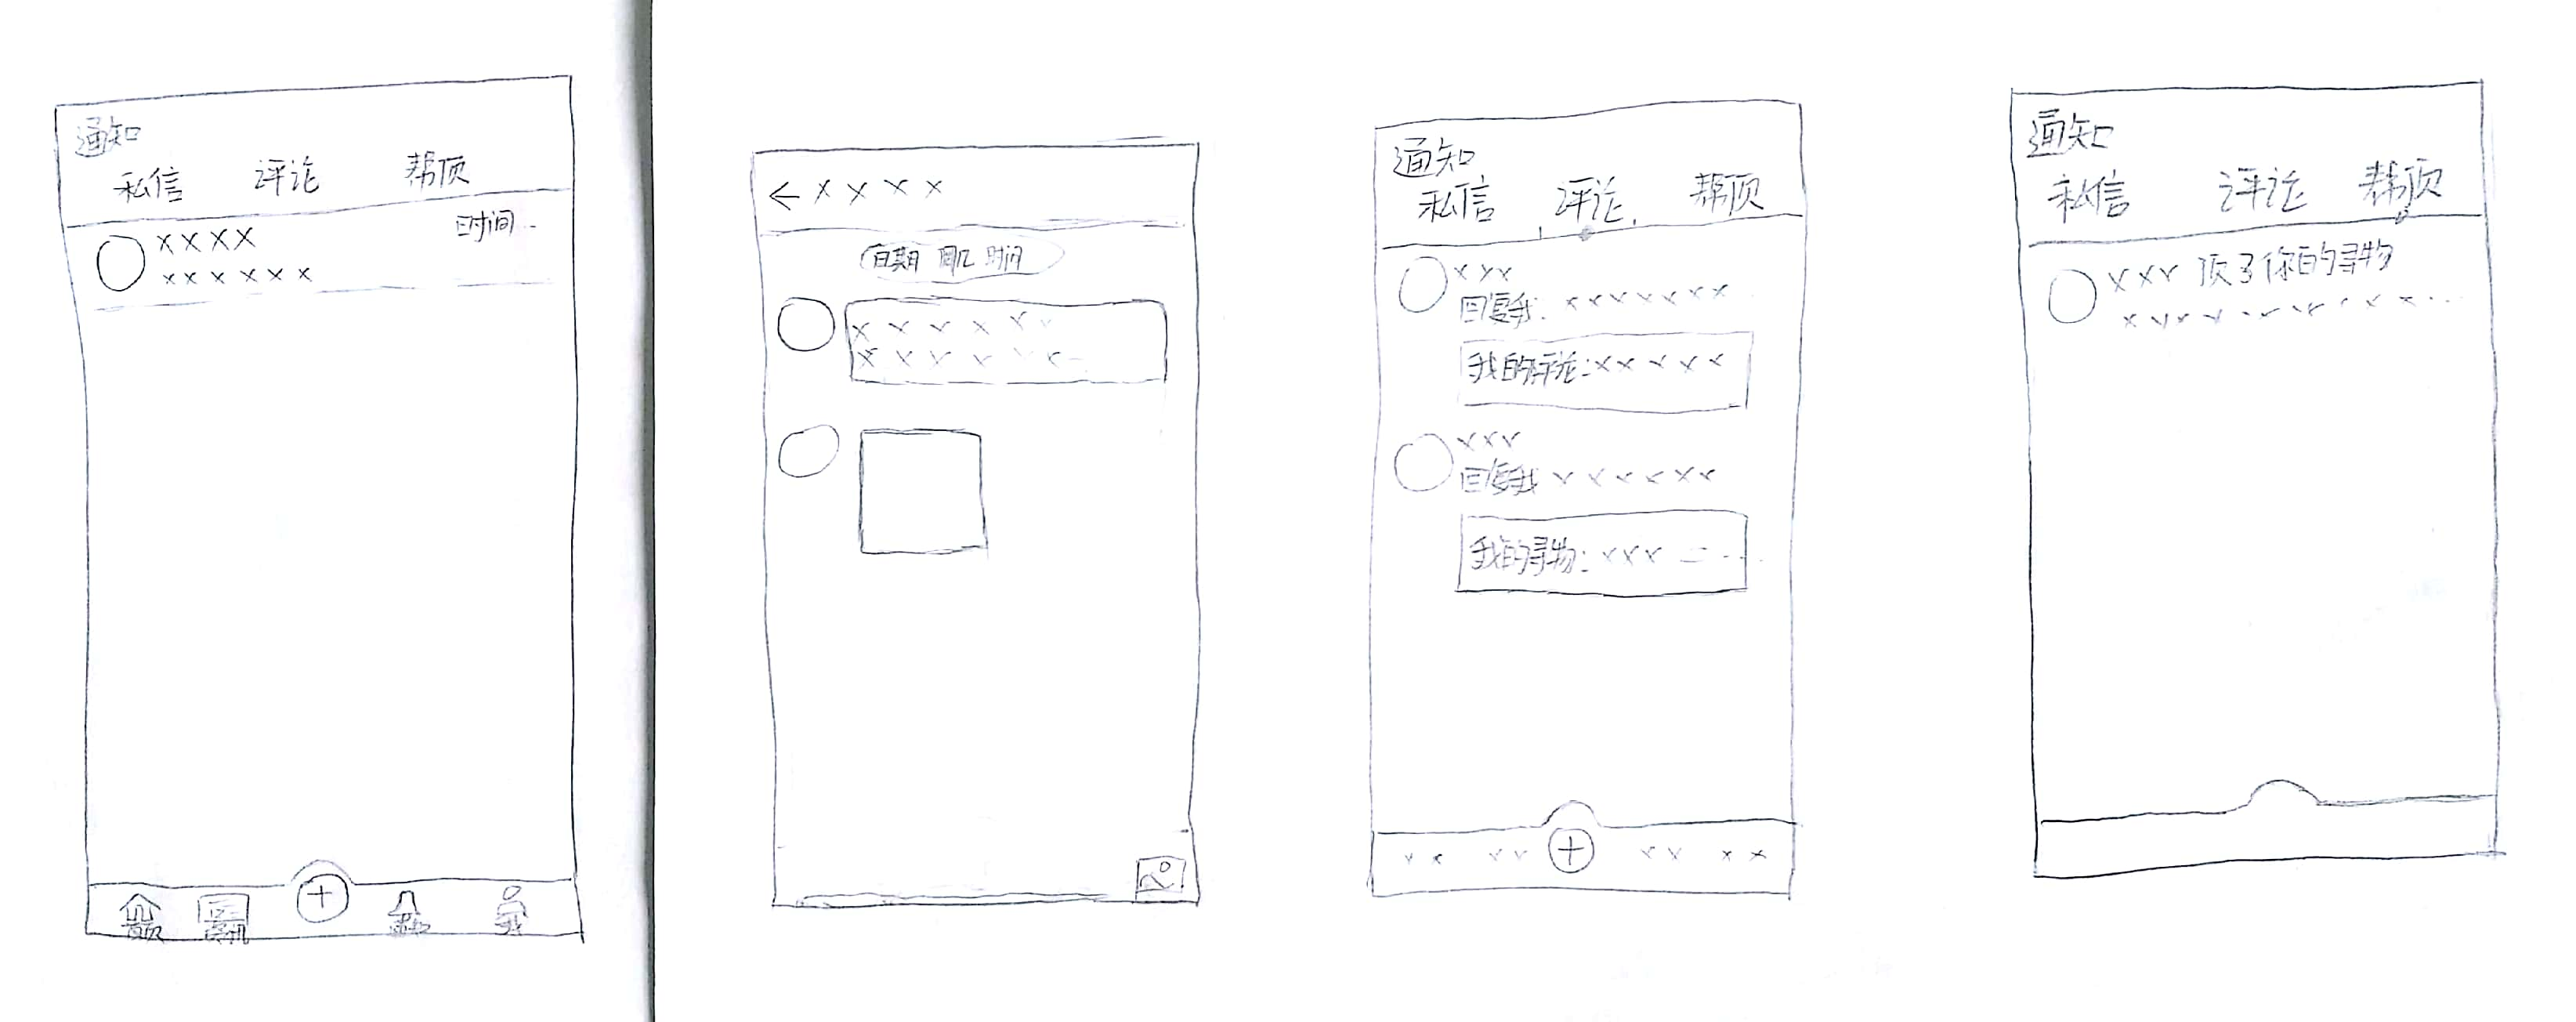 通知
私信 评论 帮顶
xxxx 时间
xxxxxx
首页
我
← xxxx
日期 周几 时间
xxxxxx
xxxxxx
通知
私信 评论 帮顶
xxx
回复我: xxxxxxx
我的评论: xxxxx
xxx
回复我 xxxxxx
我的寻物: xxx
xx xx + xx xx
通知
私信 评论 帮顶
xxx 顶了你的寻物